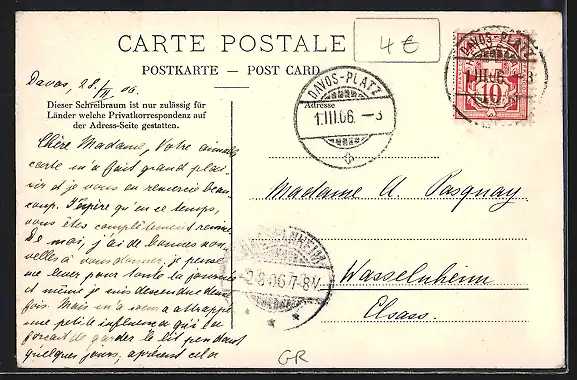 CARTE POSTALE
POSTKARTE — POST CARD
4 €
DAVOS-PLATZ
1.III.06. –3
10
DAVOS-PLATZ
1.III.06. –3
Adresse
Davos, 28./II. 06.
Dieser Schreibraum ist nur zulässig für
Länder welche Privatkorrespondenz auf
der Adress-Seite gestatten.
Chère Madame, Votre aimable
carte m'a fait grand plai-
sir et je vous en remercie beau-
coup. J'espère qu'en ce temps,
vous êtes complètement remise.
De moi, j'ai de bonnes nou-
velles à vous donner, je peux
me lever pour toute la journée
et même je suis descendue deux
fois. Mais m'a attrappé
une petite influenza qui
forçait de garder le lit pendant
quelques jours, à présent cela
Madame A. Pasquay
Wasselnheim
Elsass.
7-8V
GR